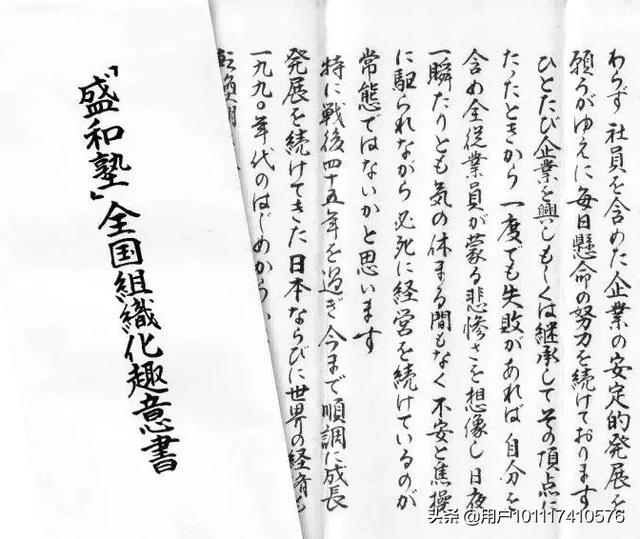 「盛和塾」全国組織化趣意書
わらず 社員を含めた企業の安定的発展を
願うがゆえに毎日懸命の努力を続けております
ひとたび企業を興しもしくは継承してその頂点に
たったときから 一度でも失敗があれば 自分を
含め全従業員が蒙る悲惨さを想像し 日夜
一瞬たりとも気の休まる間もなく 不安と焦燥
に駆られながら 必死に経営を続けているのが
常態ではないかと思います
特に戦後四十五年を過ぎ 今まで順調に成長
発展を続けてきた日本ならびに世界の経済も
一九九〇年代のはじめから
転換期
头条 @用户101117410576